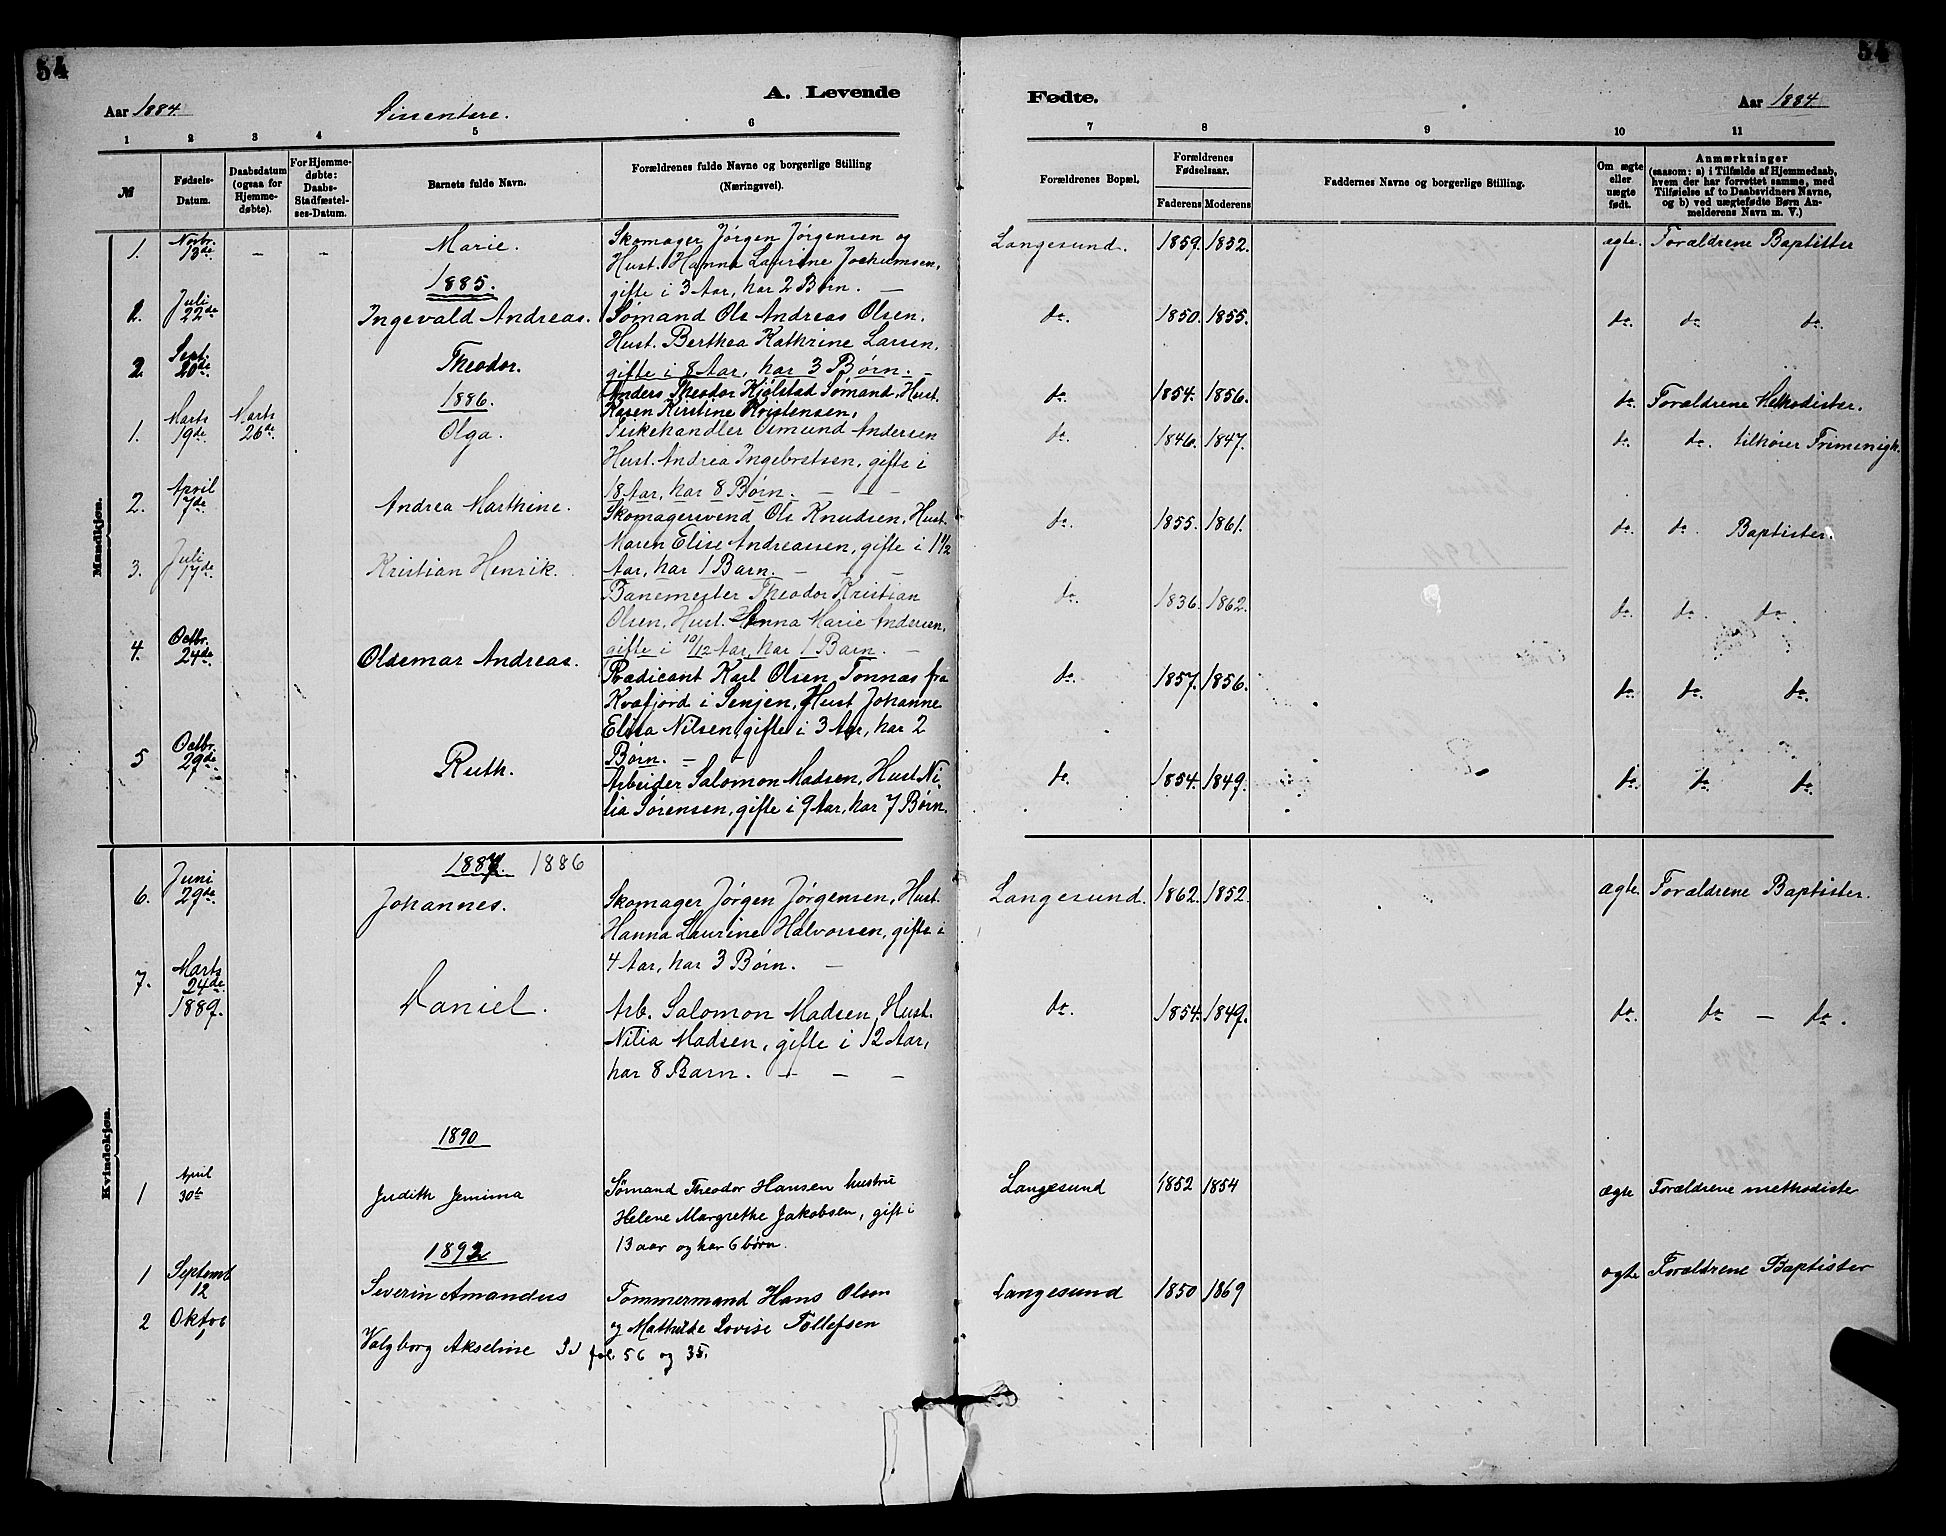 54
54
Aar 1884. Dissentere. A. Levende
Fødte. Aar 1884
1 2 3 4 5 6
7 8 9 10 11
№
Fødsels-
Datum.
Daabsdatum
(ogsaa for
Hjemme-
døbte).
For Hjemme-
døbte:
Daabs-
Stadfæstel-
ses-Datum.
Barnets fulde Navn.
Forældrenes fulde Navne og borgerlige Stilling
(Næringsvei).
Forældrenes Bopæl.
Forældrenes
Fødselsaar.
Faderens Moderens
Faddernes Navne og borgerlige Stilling.
Om ægte
eller
uægte
født.
Anmærkninger
(saasom: a) i Tilfælde af Hjemmedaab,
hvem der har forrettet samme, med
Tilføielse af to Daabsvidners Navne,
og b) ved uægtefødte Børn An-
melderens Navn m. V.)
Mandkjøn.
1. Novbr. 13de - - Marie.
Skomager Jörgen Jörgensen og
Hust. Hanna Laurine Jochumsen,
gifte i 3 Aar, har 2 Börn. —
Langesund. 1859. 1852. ægte. Forældrene Baptister
1885.
1. Juli 22de Ingevald Andreas.
Sømand Ole Andreas Olsen,
Hust. Berthea Kathrine Larsen,
gifte i 8 Aar, har 3 Børn. —
do. 1850. 1855. do. do. do.
2. Sept. 20de Theodor.
Anders Theodor Kjølstad Sømand, Hust.
Karen Kirstine Kristensen,
do. 1854. 1856. do. Forældrene Methodister.
1886.
1. Marts 19de Marts 26de Olga.
Fiskehandler Osmund Andersen
Hust. Andrea Ingebretsen, gifte i
18 Aar, har 8 Börn. — — —
do. 1846. 1847. do. do. tilhører Frimenigh.
2. April 7de Andrea Marthine.
Skomagersvend Ole Knudsen, Hust.
Maren Elise Andreassen, gifte i 1 1/2
Aar, har 1 Barn. — — —
do. 1855. 1861. do. do. Baptister.
3. Juli 17de Kristian Henrik.
Banemester Theodor Kristian
Olsen, Hust. Hanna Marie Andersen,
gifte i 10/12 Aar, har 1 Barn. —
do. 1836. 1862. do. do. do.
4. Octbr. 24de Oldemar Andreas.
Prædicant Karl Olsen Tonnas fra
Kvæfjord i Senjen, Hust Johanne
Elisa Nilsen, gifte i 3 Aar, har 2
Børn. — —
do. 1857. 1856. do. do. do.
5 Octbr. 29de Ruth.
Arbeider Salomon Madsen, Hust. Ni-
lia Sørensen, gifte i 9 Aar, har 7 Børn.
do. 1854. 1849. do. do. do.
Kvindekjøn.
1887. 1886
6. Juni 29de Johannes.
Skomager Jörgen Jörgensen, Hust.
Hanna Laurine Halvorsen, gifte i
4 Aar, har 3 Börn. —
Langesund. 1862. 1852. ægte. Forældrene Baptister.
7. Marts 24de 1889. Daniel.
Arb. Salomon Madsen, Hust.
Nilia Madsen, gifte i 12 Aar,
har 8 Barn. — — —
do. 1854. 1849. do. do — do.
1890
1 April 30te Judith Jemima
Sømand Theodor Hansen hustru
Helene Margrethe Jakobsen, gift i
13 aar og har 6 børn.
Langesund 1852 1854 ægte Forældrene methodister
1892
1 Septemb 12 Severin Amandus
Tømmermand Hans Olsen
og Mathilde Lovise Tollefsen
Langesund 1850 1869 ægte Forældrene Baptister
2 Oktob 1 Valgborg Akseline Id fol. 56 og 35.